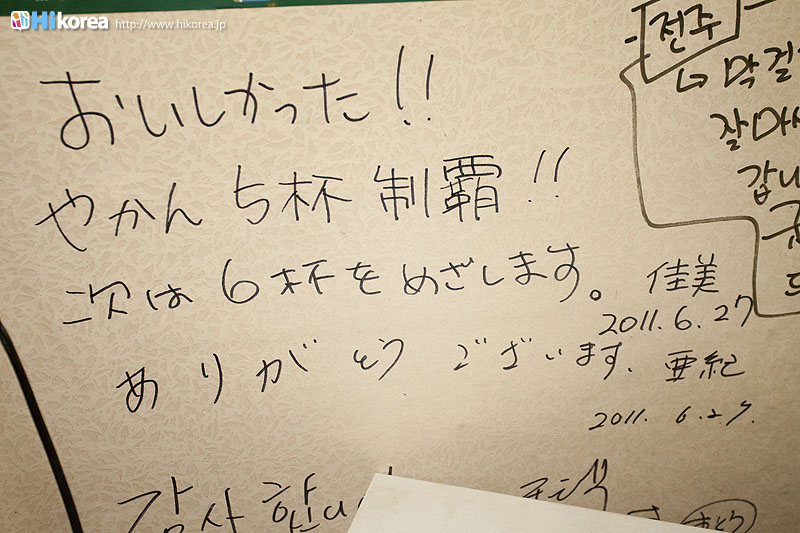 Hikorea http://www.hikorea.jp
おいしかった!!
やかん 5杯 制覇!!
次は6杯をめざします。 佳美
2011.6.27
ありがとう ございます. 亜紀
2011. 6.27.
감사합니
전주
막걸
잘마시
갑니